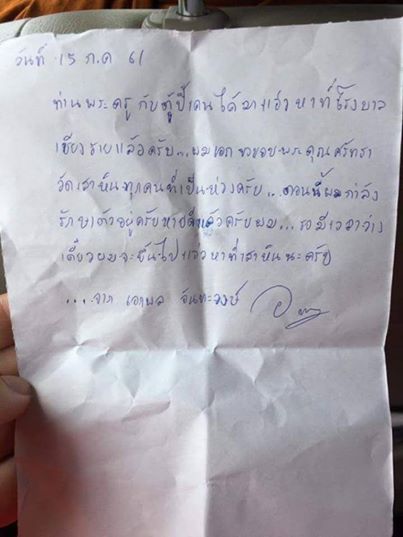 วันที่ 15 ก.ค 61
ท่านพระครู กับตู้ปี้เคนได้มาแอ่วหาที่โรงบาล
เชียงรายแล้วครับ... ผมเอก ขอขอบพระคุณศรัทธา
วัดเสาหินทุกคนที่เป็นห่วงครับ... ตอนนี้ผมกำลัง
รักษาตัวอยู่ครับหายดีแล้วครับผม... รอมีเวลาว่าง
เดี๋ยวผมจะขึ้นไปแอ่วหาที่เสาหินนะครับ
... จาก เอกพล จันทะวงษ์